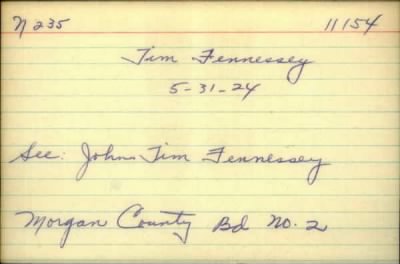 N 235 11154
Tim Fennessey
5-31-24
See: John Tim Fennessey
Morgan County Bd No. 2